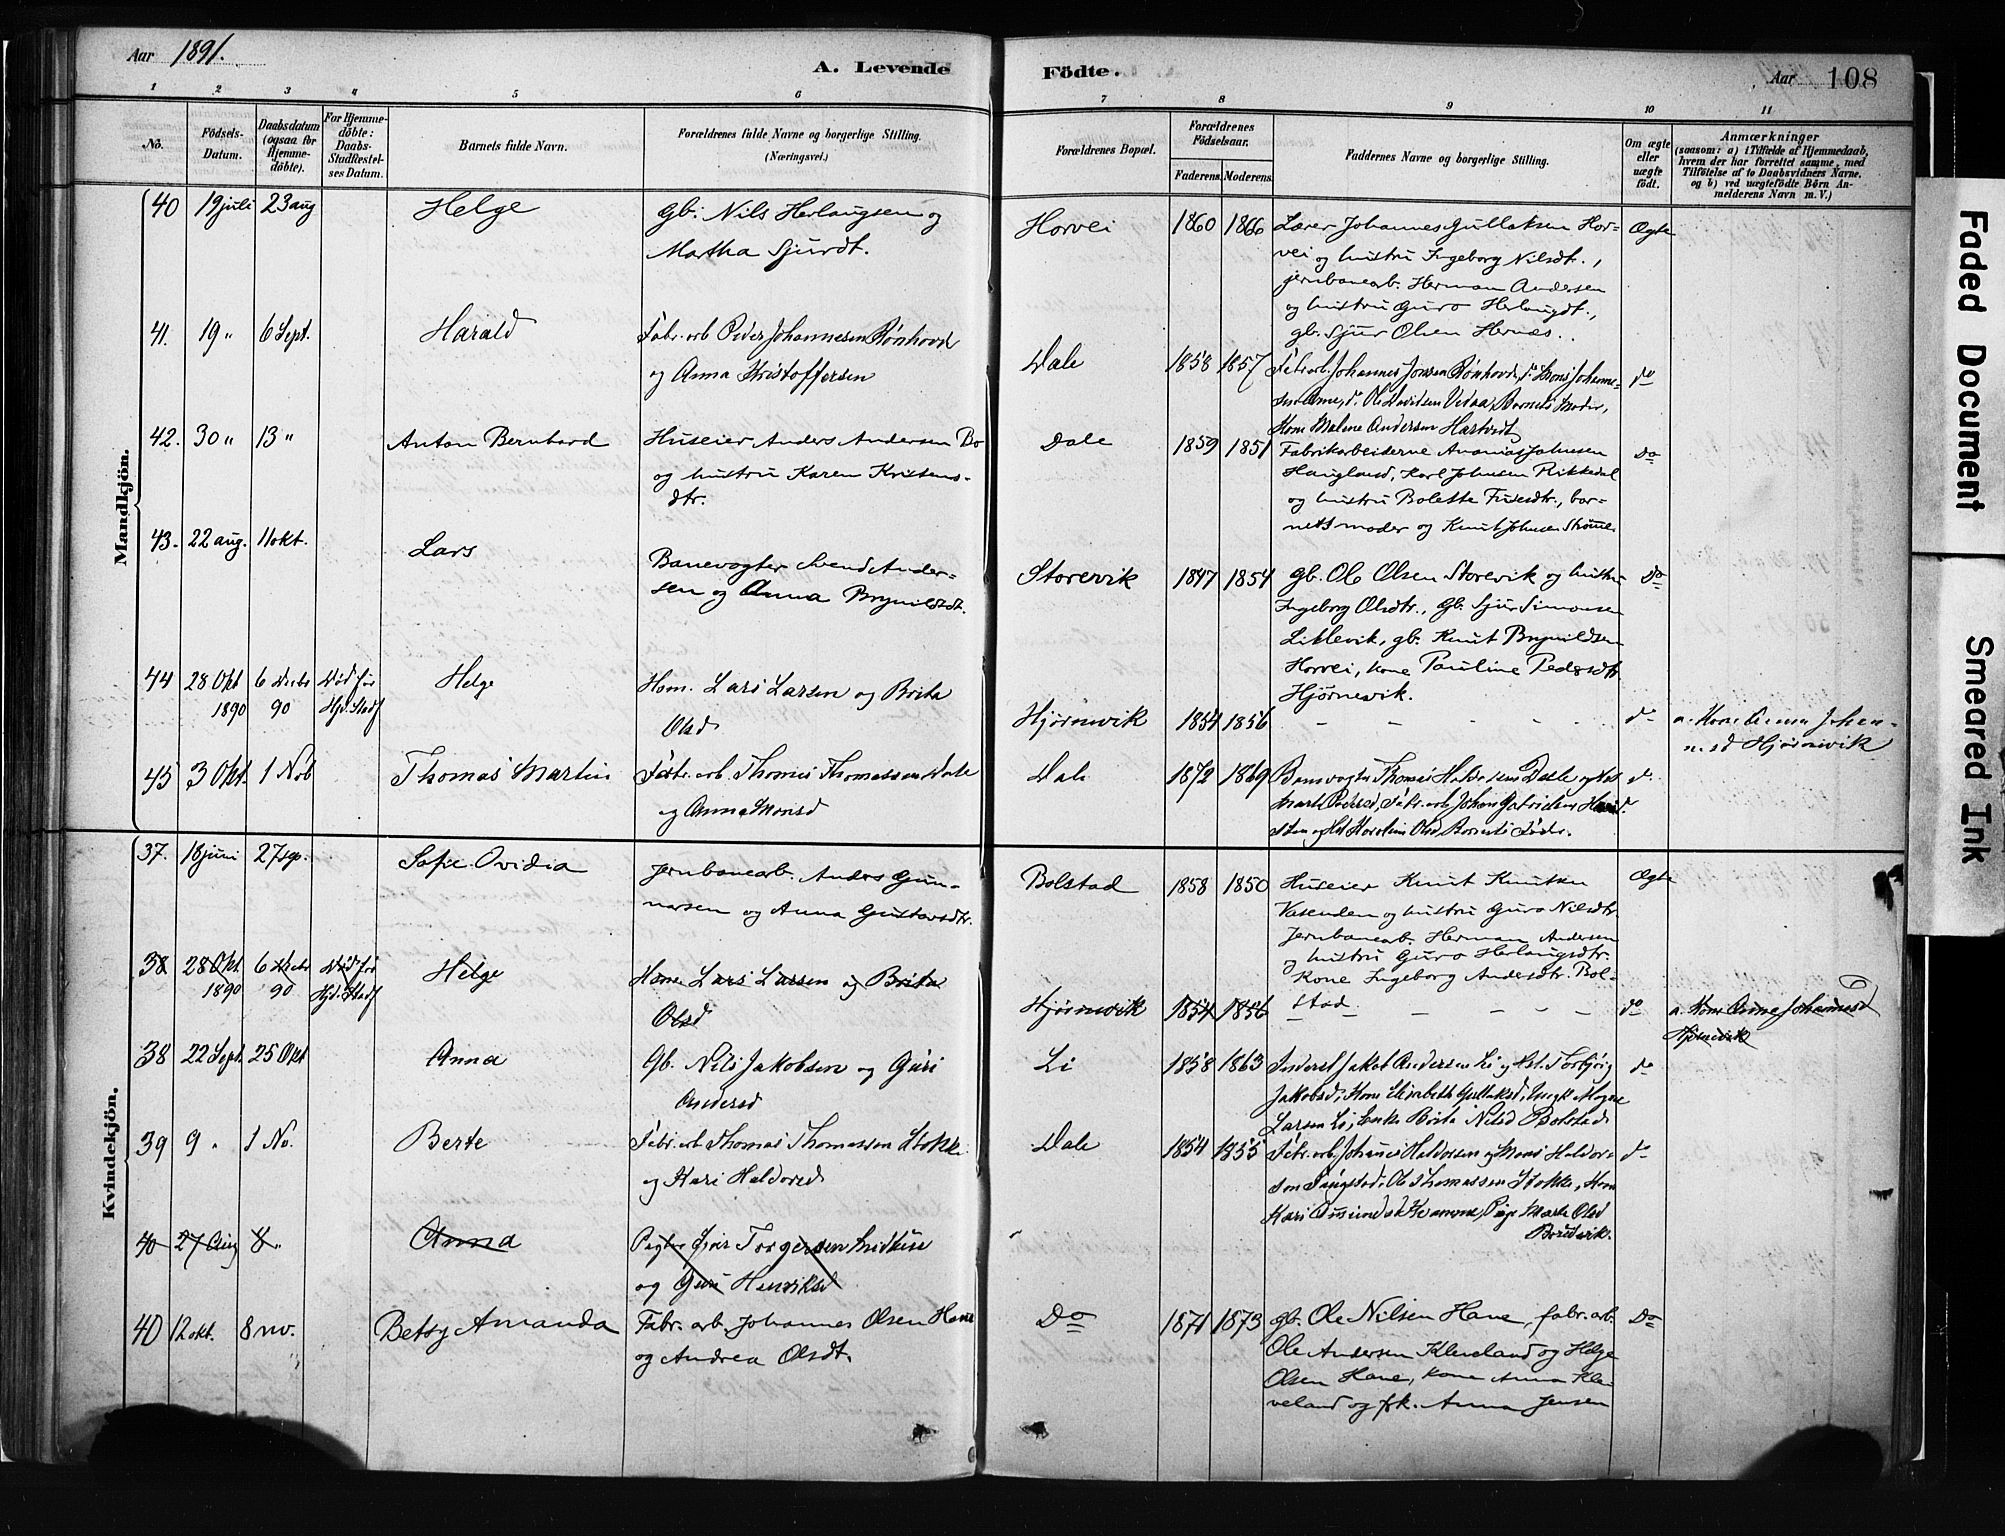 Aar 1891.
A. Levende
Födte.
Aar 108
1 2 3 4 5 6 7 8 9 10 11
No.
Födsels-
Datum.
Daabsdatum
(ogsaa for
Hjemme-
döbte).
For Hjemme-
döbte:
Daabs-
Stadfestel-
ses Datum.
Barnets fulde Navn.
Forældrenes fulde Navne og borgerlige Stilling.
(Næringsvei.)
Forældrenes Bopæl.
Forældrenes
Födselsaar.
Faderens. Moderens.
Faddernes Navne og borgerlige Stilling.
Om ægte
eller
uægte
födt.
Anmærkninger
(saasom: a) i Tilfælde af Hjemmedaab,
hvem der har forrettet samme, med
Tilföielse af to Daabsvidners Navne.
og b) ved uægtefödte Börn An-
melderens Navn m. V.)
Mandkjön.
40 19 juli 23 aug Helge
Gb. Nils Herlaugsen og
Martha Sjurdt.
Horvei 1860 1866
Lærer Johannes Gullaksen Hor-
vei og hustru Ingeborg Nilsdtr.,
jernbanearb. Herman Andersen
og hustru Guro Herlaugdt.,
gb. Sjur Olsen Hernæs.
Ægte
41. 19 " 6 Sept. Harald
Fabr. arb Peder Johannesen Rønhovde
og Anna Kristoffersen
Dale 1858 1857
Fabr. arb. Johannes Jonsen Rønhovde, do Mons Johanne-
sen, do. Ole Davidsen Vidaa, Barnets Moder,
Kone Malene Andersen Hartvedt
do
42. 30 " 13 " Anton Bernhard
Huseier Anders Andersen Bo
og hustru Karen Kristens-
dtr.
Dale 1859 1851
Fabrikarbeiderne Ananias Johnsen
Haugland, Karl Johnsen Rikkedal
og hustru Bolette Fusedtr., bar-
nets moder og Knut Johnsen Strømme
Do
43. 22 aug. 11 okt. Lars
Banevogter Svend Ander-
sen og Anna Brynildsdt.
Storevik 1847 1854
Gb. Ole Olsen Storevik og hustru
Ingeborg Olsdtr., Gb. Sjur Simonsen
Liklevik, gb. Knut Brynildsen
Horvei, kone Pauline Pedersdtr
Hjørnevik.
Do
44 28 Okt 1890 6 Decbr 90 Død før Hjd. Stadf Helge
Hom. Lars Larsen og Brita
Olsd
Hjørnevik 1854 1856 - - - - - do
a. Kone Anna Johan-
nesd Hjørnevik
45 3 Okt. 1 Nov Thomas Martin
Fabr. arb. Thomas Thomassen Dale
og Anna Monsd
Dale 1872 1869
Banevogter Thomas Dale og
Marte Pedersd, Fabr. arb Johan Gabrielsen
og Karoline Olsd, Barnets Fader.
do
Kvindekjön.
37. 18 juni 27 sep. Sofie Ovidia
Jernbanearb. Anders Gun-
narsen og Anna Gustavsdtr.
Bolstad 1858 1850
Huseier Knut Knutsen
Vasenden og hustru Guro Nilsdtr.
Jernbanearb. Herman Andersen
og hustru Guro Herlaugsdtr.
Kone Ingeborg Andersdtr. Bol-
stad
Ægte
38 28 Okt. 1890 6 Decbr 90 Død før Hjd. Stadf Helge
Hom. Lars Larsen og Brita
Olsd
Hjørnevik 1854 1856 - - - - - do
a. Kone Anna Johannesd
Hjørnevik
38 22 Sept. 25 Okt Anna
Gb. Nils Jakobsen og Guri
Andersd
Li 1858 1863
Inderst Jakob Andersen Li og Torbjørg
Jakobsd, Kone Elisabeth Gullaksd, Ungk Mogne
Larsen Li, Enke Brita Nilsd Bolstad
do
39 9 " 1 No. Berte
Fabr. arb Thomas Thomassen Stokke
og Kari Haldorsd
Dale 1854 1855
Fabr. arb. Johannes Haldorsen og Mons Haldor-
sen Tangstad, Ole Thomassen Stokke, Kone
Kari Pige Marta Olsd
do
40 27 Aug 8 " Anna
Torgersen
og Guri Henriksd
40 12 okt. 8 nov. Betsy Amanda
Fabr. arb. Johannes Olsen Hane
og Andrea Olsdt.
Do 1871 1873
gb. Ole Nilsen Hane, fabr. arb.
Ole Andersen Kleveland og Helge
Olsen Hane, kone Anna Kle-
veland og frk. Anna Jensen
Do
Faded Document
Smeared Ink